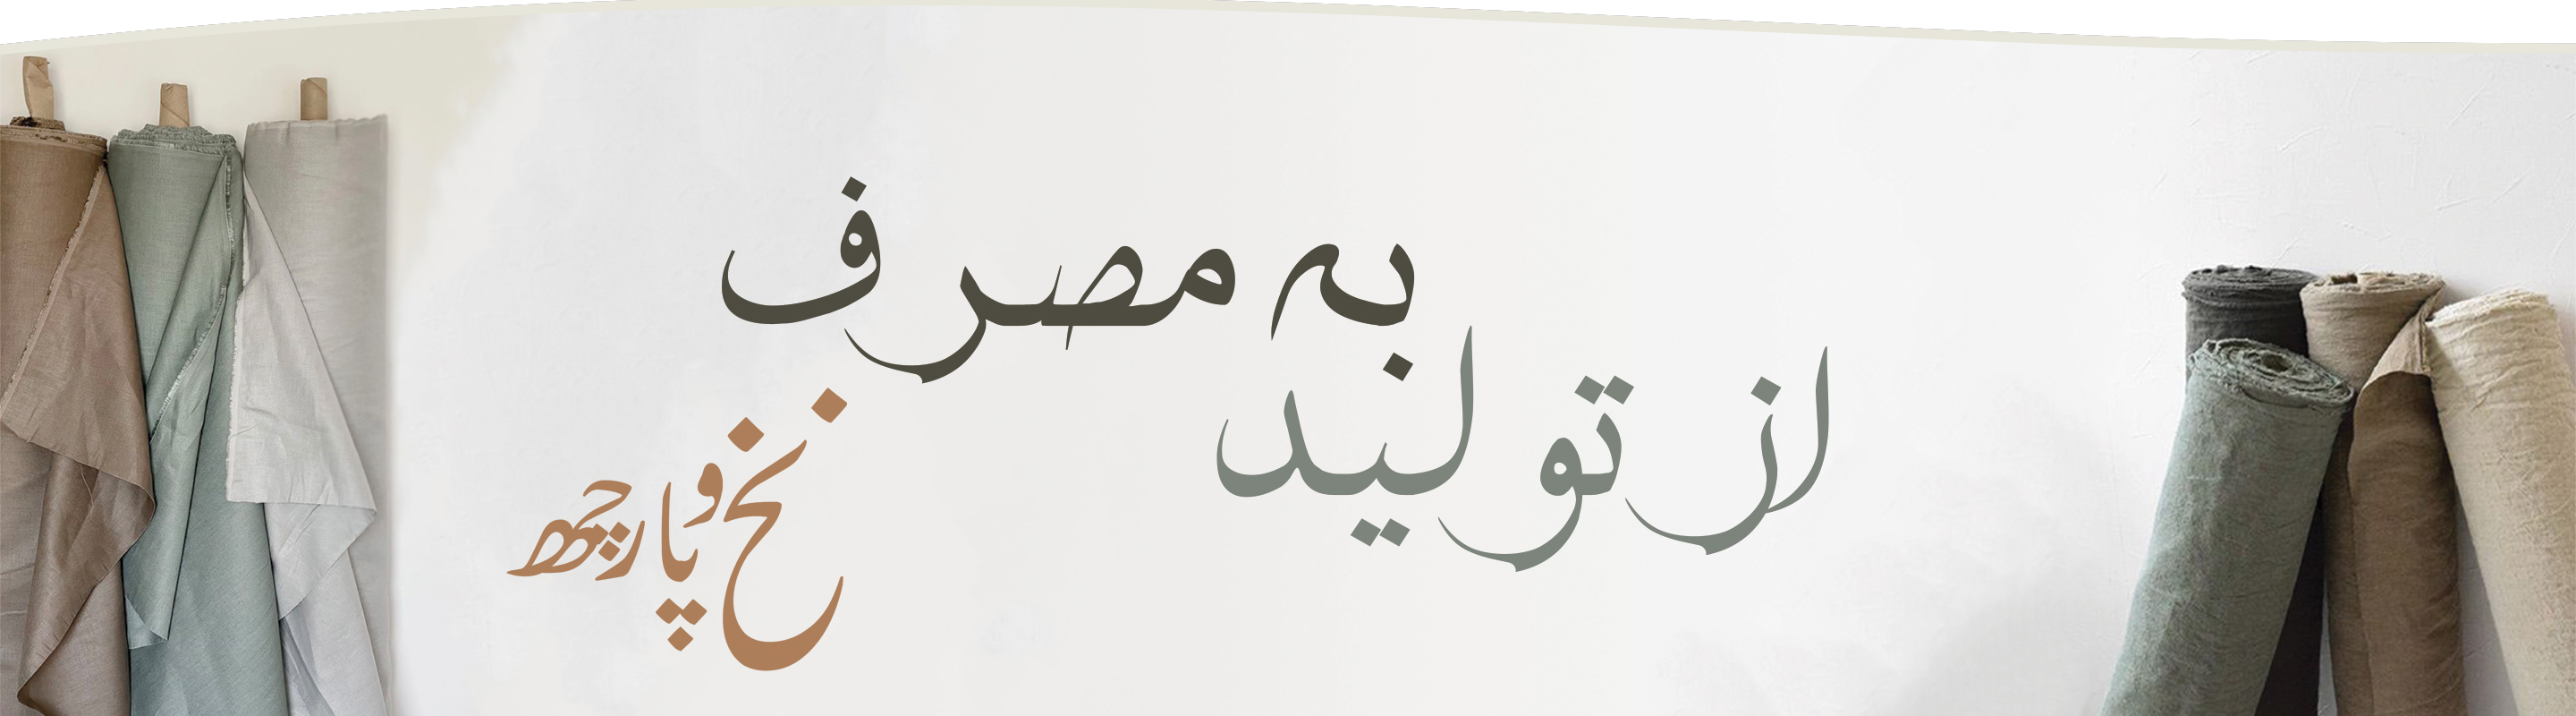 از تولید
به مصرف
نخ و پارچه